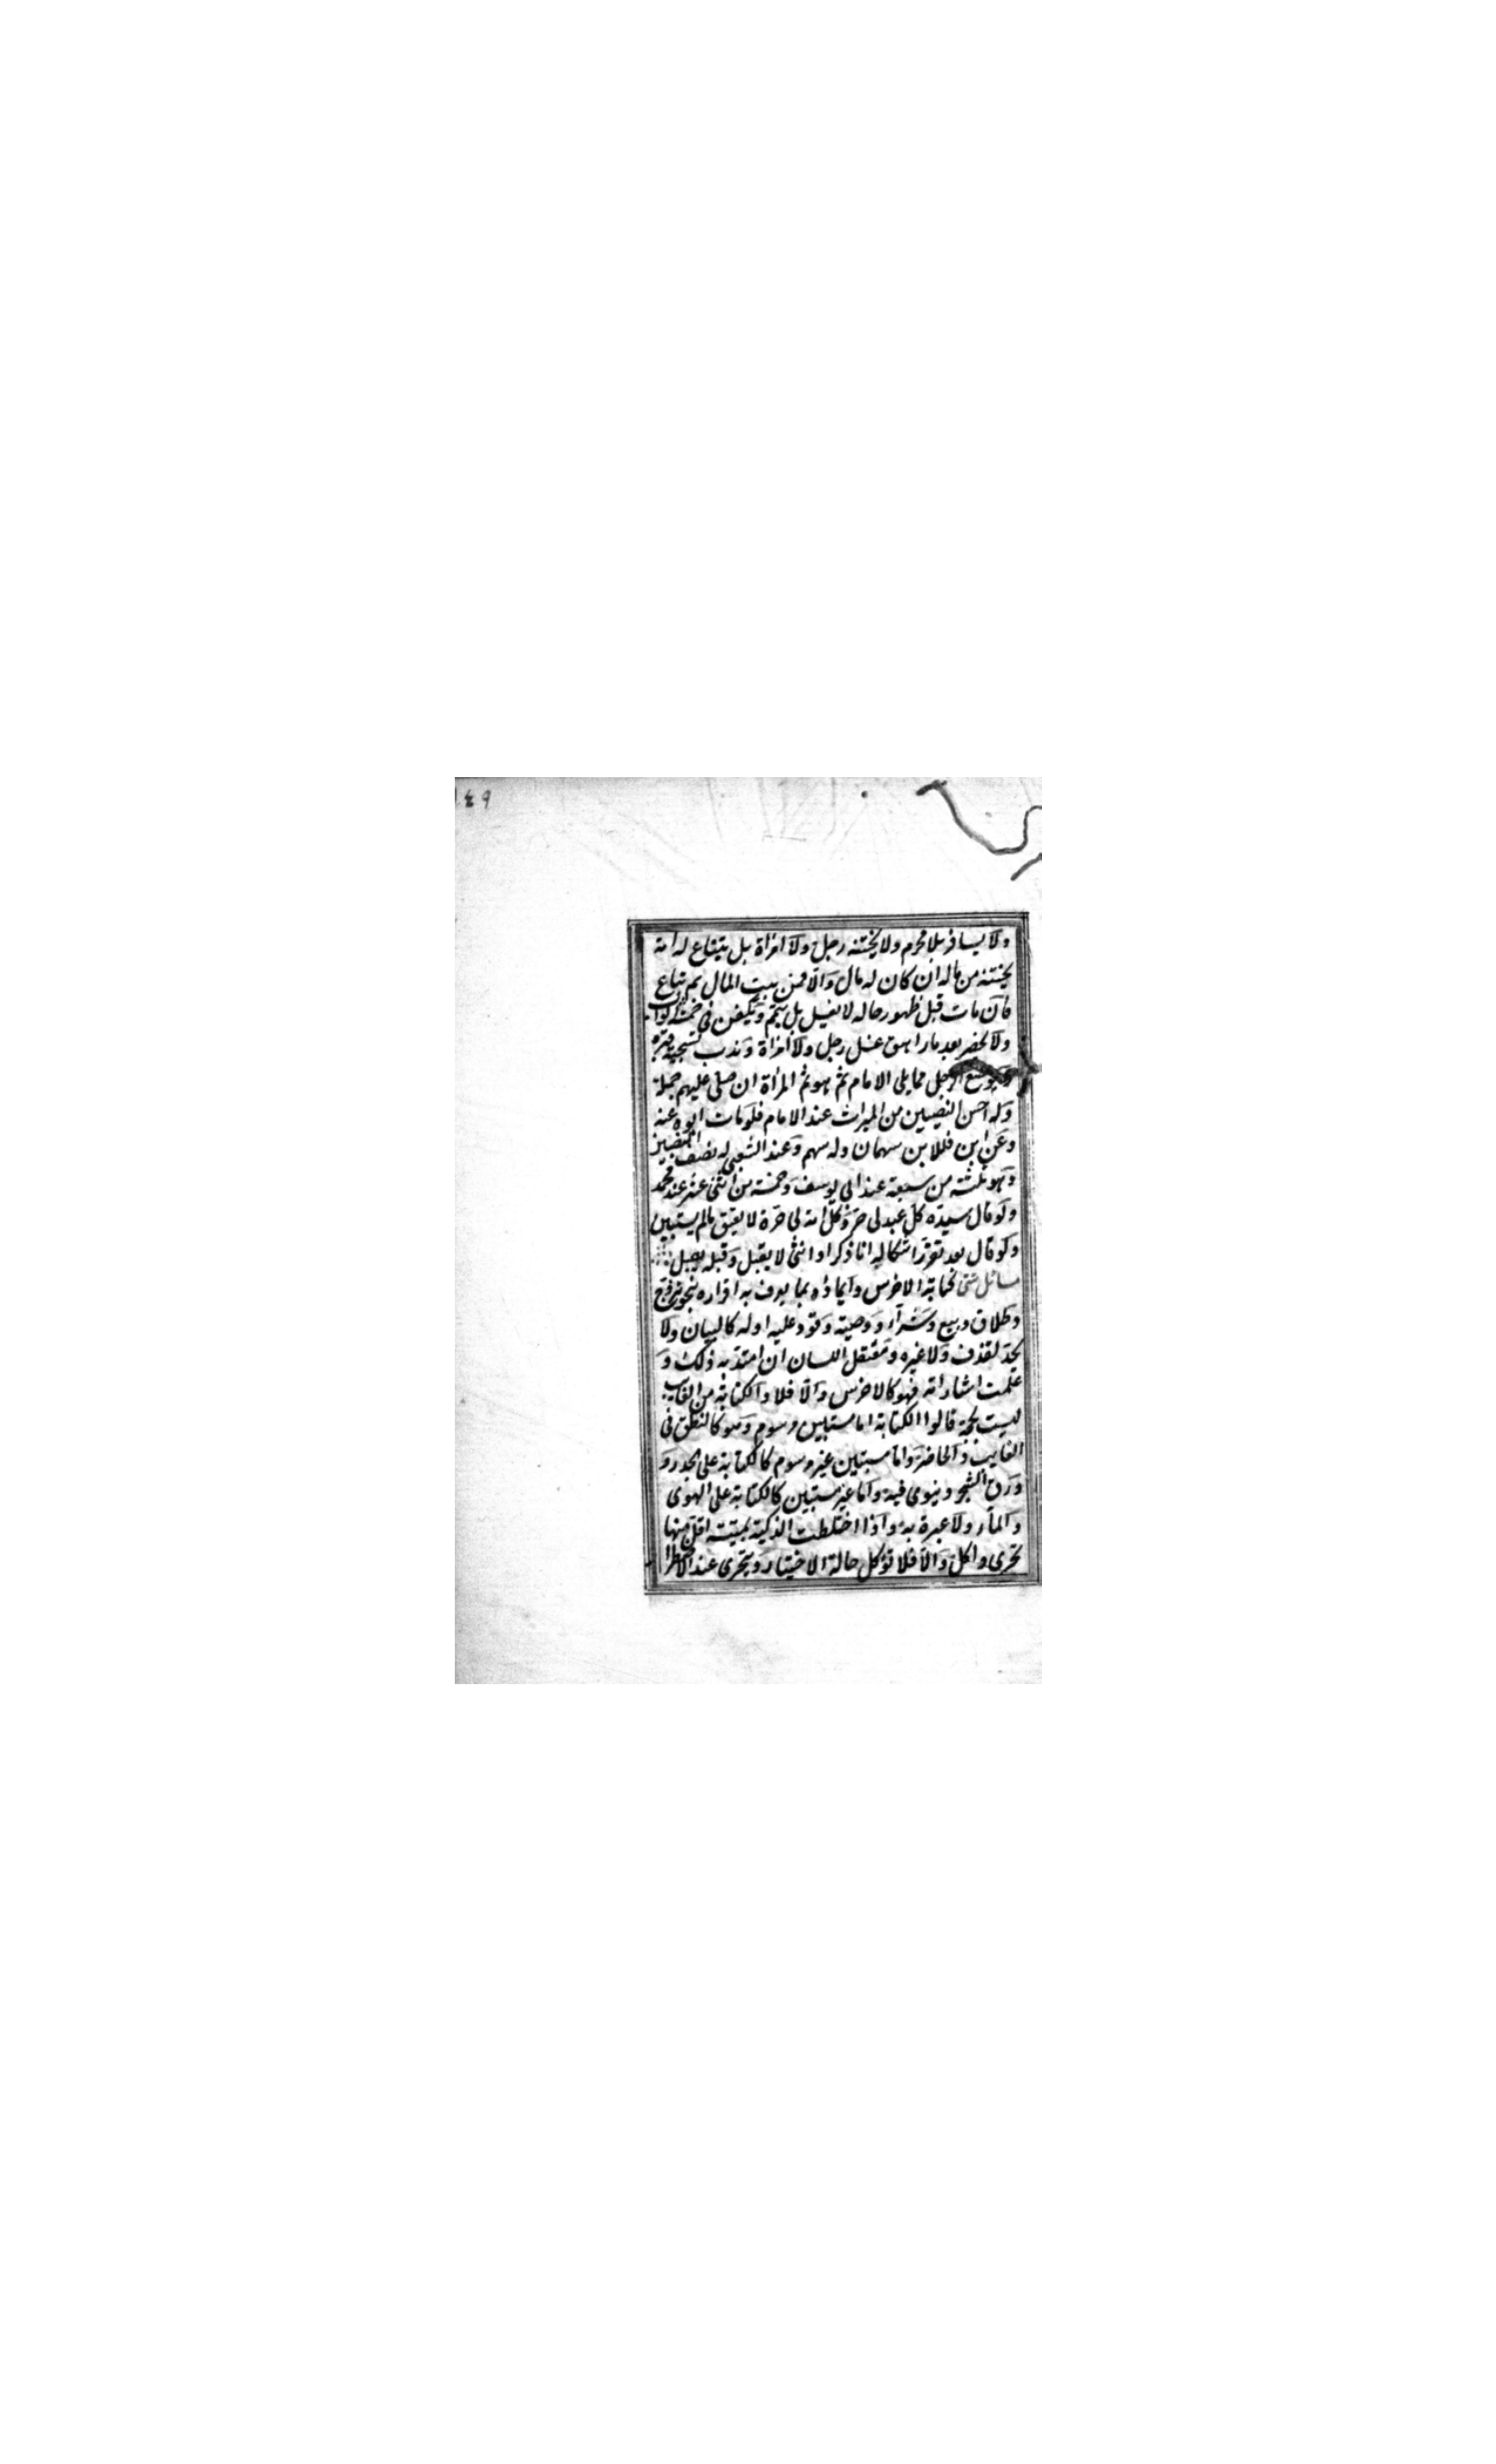 ١٤٩
ولا يسافر بلا محرم ولا يختنه رجل ولا امراة بل يبتاع له امة
تختنه من ماله ان كان له مال والا فمن بيت المال ثم تباع
فان مات قبل ظهور حاله لا يغسل بل يتيمم ويكفن في خمسة اثواب
ولا يحضر بعد ما راهق غسل رجل ولا امراة وندب تسجية قبره
ويوضع الرجل مما يلى الامام ثم هو ثم المراة ان صلى عليهم جملة
وله اخس النصيبين من الميراث عند الامام فلو مات ابوه عنه
وعن ابن فللابن سهمان وله سهم وعند الشعبى له نصف النصيبين
وهو ثلثة من سبعة عند ابى يوسف وخمسة من اثنى عشر عند محمد
ولو قال سيده كل عبد لى حر وكل امة لى حرة لا يعتق ما لم يستبين
ولو قال بعد تقرر اشكاله انا ذكر او انثى لا يقبل وقبله يقبل
مسائل شتى كتابة الاخرس وايماؤه بما يعرف به اقراره بنحو تزوج
وطلاق وبيع وشرآء ووصية وقود عليه او له كالبيان ولا
يحد لقذف ولا غيره ومعتقل اللسان ان امتد به ذلك و
علمت اشاراته فهو كالاخرس والا فلا والكتابة من الغايب
ليست بحجة قالوا الكتابة اما مستبين مرسوم وهو كالنطق فى
الغايب والحاضر واما مستبين غير مرسوم كالكتابة على الجدر و
ورق الشجر وينوى فيه واما غير مستبين كالكتابة على الهوى
والمآء ولا عبرة به واذا اختلطت الذكية بميتة اقل منها
تحرى واكل والا فلا تؤكل حالة الاختيار ويتحرى عند الاضطرا